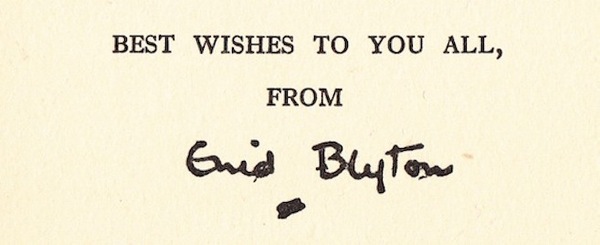 BEST WISHES TO YOU ALL,
FROM
Enid Blyton